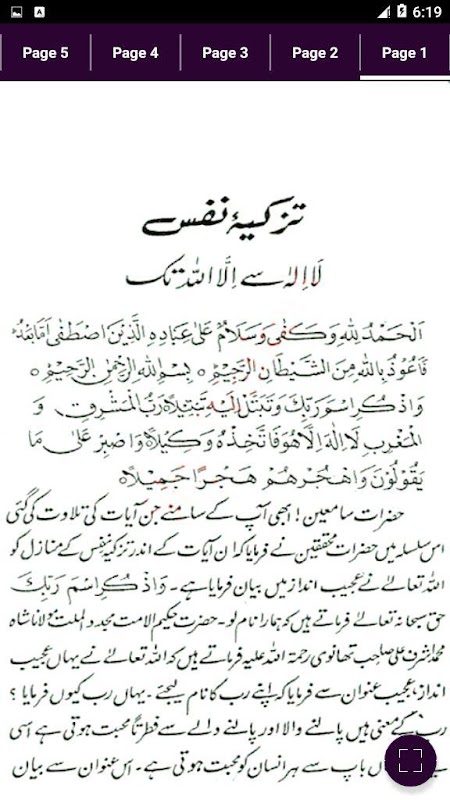 6:19
Page 5 Page 4 Page 3 Page 2 Page 1
تزکیۂ نفس
لَا اِلٰہ سے اِلَّا اللہ تک
اَلْحَمْدُ لِلّٰهِ وَكَفٰى وَسَلَامٌ عَلٰى عِبَادِهِ الَّذِيْنَ اصْطَفٰى اَمَّا بَعْدُ
فَاَعُوْذُ بِاللّٰهِ مِنَ الشَّيْطَانِ الرَّجِيْمِ ○ بِسْمِ اللّٰهِ الرَّحْمٰنِ الرَّحِيْمِ ○
وَاذْكُرِ اسْمَ رَبِّكَ وَتَبَتَّلْ اِلَيْهِ تَبْتِيْلًا ○ رَبُّ الْمَشْرِقِ وَ
الْمَغْرِبِ لَا اِلٰهَ اِلَّا هُوَ فَاتَّخِذْهُ وَكِيْلًا ○ وَاصْبِرْ عَلٰى مَا
يَقُوْلُوْنَ وَاهْجُرْهُمْ هَجْرًا جَمِيْلًا ○
حضرات سامعین! ابھی آپ کے سامنے جن آیات کی تلاوت کی گئی
اس سلسلہ میں حضرات محققین نے فرمایا کہ ان آیات کے اندر تزکیۂ نفس کے منازل کو
اللہ تعالےٰ نے عجیب انداز میں بیان فرمایا ہے۔ وَاذْكُرِ اسْمَ رَبِّكَ
حق سبحانہ تعالےٰ فرماتے ہیں کہ ہمارا نام لو۔ حضرت حکیم الامت مجدد الملت مولانا شاہ
محمد اشرف علی صاحب تھانوی رحمتہ اللہ علیہ فرماتے ہیں کہ اللہ تعالےٰ نے یہاں عجیب
انداز، عجیب عنوان سے فرمایا کہ اپنے رب کا نام لیجئے۔ یہاں رب کیوں فرمایا؟
رب کے معنی ہیں پالنے والا اور پالنے والے سے فطرتاً محبت ہوتی ہے اسی
باپ سے ہر انسان کو محبت ہوتی ہے۔ اس عنوان سے بیان